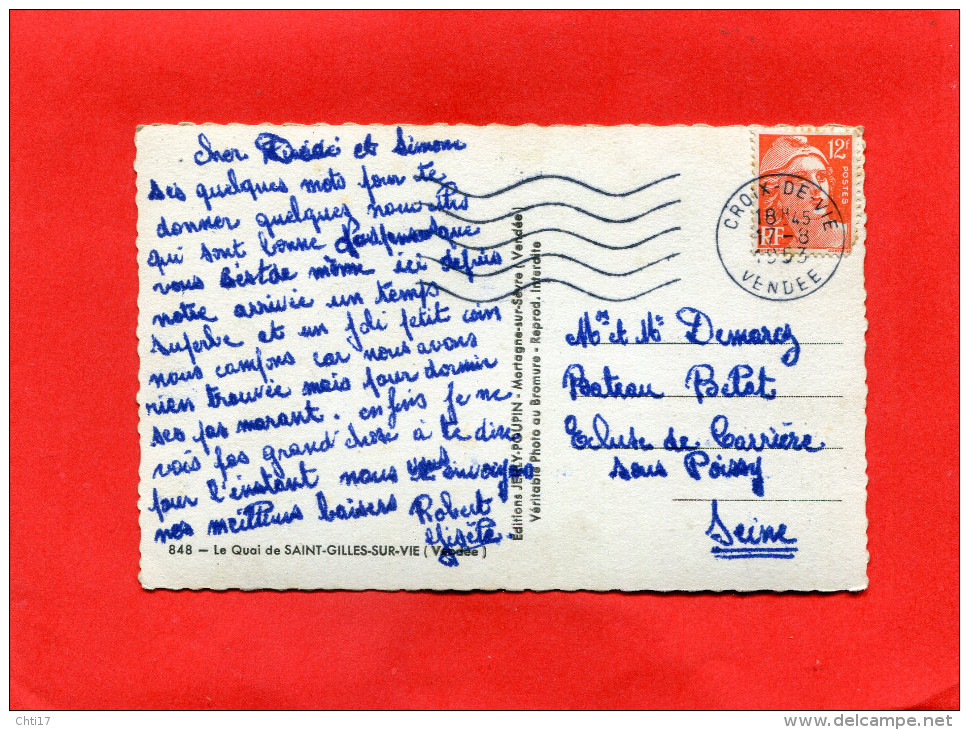 Cher Dédé et Simone
ses quelques mots pour te
donner quelquez nouvelles
qui sont bonne j'espense que
vous s'estde même ici depuis
notre arrivée un temps
superbe et un joli petit coin
nous campons car nous avons
rien trouvée mais pour dormir
ses pas marant. enfins je ne
vois pas grand chose à te dire
pour l'instant nous vous envoyons
nos meilleurs baisers Robert
Gisèle
848 — Le Quai de SAINT-GILLES-SUR-VIE (Vendée)
Editions JEHLY-POUPIN - Mortagne-sur-Sèvre (Vendée)
Véritable Photo au Bromure - Reprod. Interdite
12F
POSTES
RF
CROIX-DE-VIE
18H45
-8
1953
VENDEE
Mr et Me Demarcz
Bateau Belat
Ecluse de Carrière
sous Poissy
Seine
Chti17
www.delcampe.net